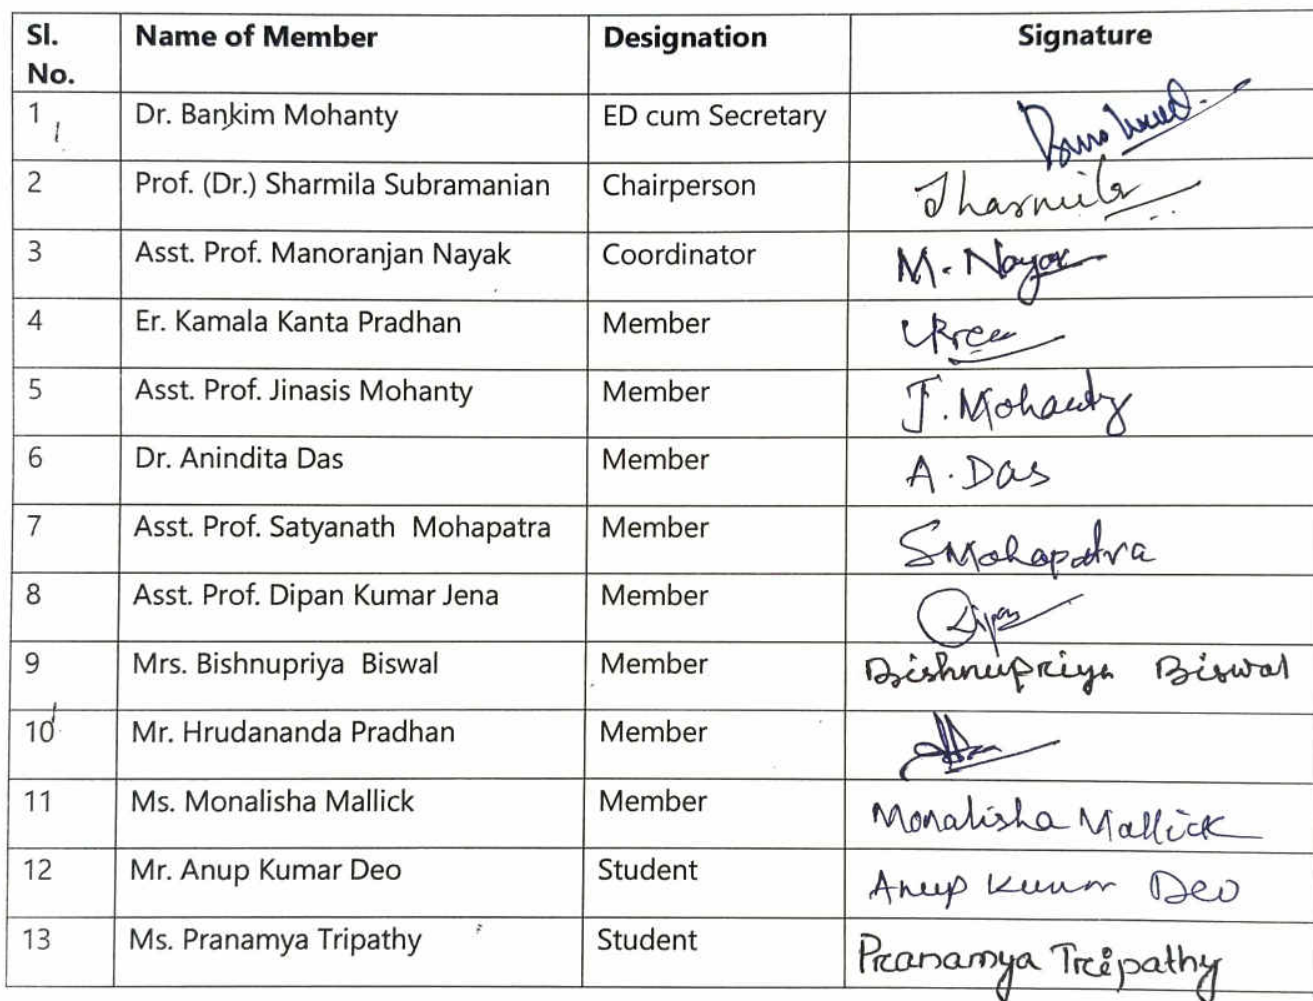 Sl. No. Name of Member Designation Signature
1 Dr. Bankim Mohanty ED cum Secretary
2 Prof. (Dr.) Sharmila Subramanian Chairperson Sharmila
3 Asst. Prof. Manoranjan Nayak Coordinator M. Nayak
4 Er. Kamala Kanta Pradhan Member
5 Asst. Prof. Jinasis Mohanty Member J. Mohanty
6 Dr. Anindita Das Member A. Das
7 Asst. Prof. Satyanath Mohapatra Member SMohapatra
8 Asst. Prof. Dipan Kumar Jena Member Dipan
9 Mrs. Bishnupriya Biswal Member Bishnupriya Biswal
10 Mr. Hrudananda Pradhan Member
11 Ms. Monalisha Mallick Member Monalisha Mallick
12 Mr. Anup Kumar Deo Student Anup Kumar Deo
13 Ms. Pranamya Tripathy Student Pranamya Tripathy